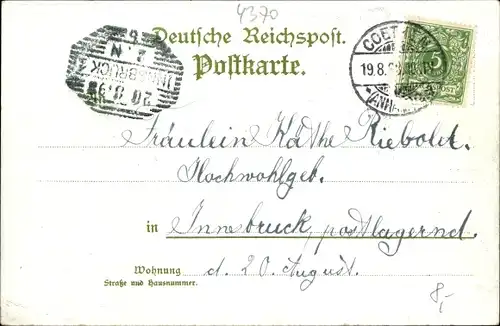 4370
Deutsche Reichspost.
Postkarte.
COETHEN
19.8.98
(ANHALT)
5
INNSBRUCK
20.8.98
2.N
Fräulein Käthe Riebold.
Hochwohlgeb.
in Innsbruck, postlagernd.
Wohnung d. 20. August.
Straße und Hausnummer.
8,-